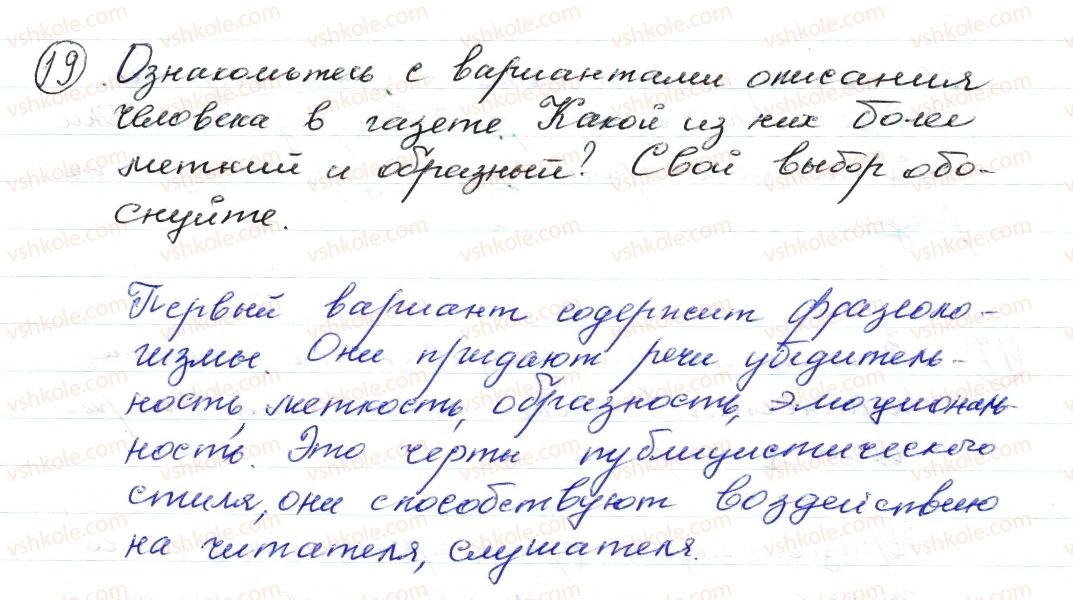 19. Ознакомьтесь с вариантами описания
человека в газете. Какой из них более
меткий и образный? Свой выбор обо-
снуйте.
Первый вариант содержит фразеоло-
гизмы. Они придают речи убедитель-
ность, меткость, образность, эмоциональ-
ность. Это черты публицистического
стиля, они способствуют воздействию
на читателя, слушателя.